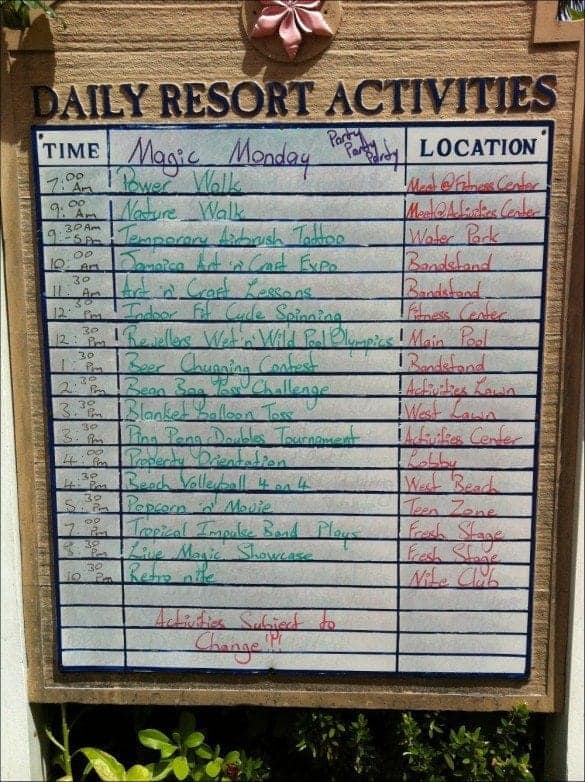 DAILY RESORT ACTIVITIES
TIME Magic Monday Party Party Party LOCATION
7:00 Am Power Walk Meet@Fitness Center
9:00 Am Nature Walk Meet@Activities Center
9:30Am-5Pm Temporary Airbrush Tattoo Water Park
10:00 Am Jamaica Art 'n' Craft Expo Bandstand
11:30 Am Art 'n' Craft Lessons Bandstand
12:30 Pm Indoor Fit Cycle Spinning Fitness Center
12:30 Pm Revellers Wet 'n' Wild Pool Olympics Main Pool
1:30 Pm Beer Chugging Contest Bandstand
2:30 Pm Bean Bag Toss Challenge Activities Lawn
3:30 Pm Blanket Balloon Toss West Lawn
3:30 Pm Ping Pong Doubles Tournament Activities Center
4:00 Pm Property Orientation Lobby
4:30 Pm Beach Volleyball 4 on 4 West Beach
5:30 Pm Popcorn 'n' Movie Teen Zone
7:00 Pm Tropical Impulse Band Plays Fresh Stage
8:30 Pm Live Magic Showcase Fresh Stage
10:30 Pm Retro nite Nite Club
Activities Subject to
Change!!!